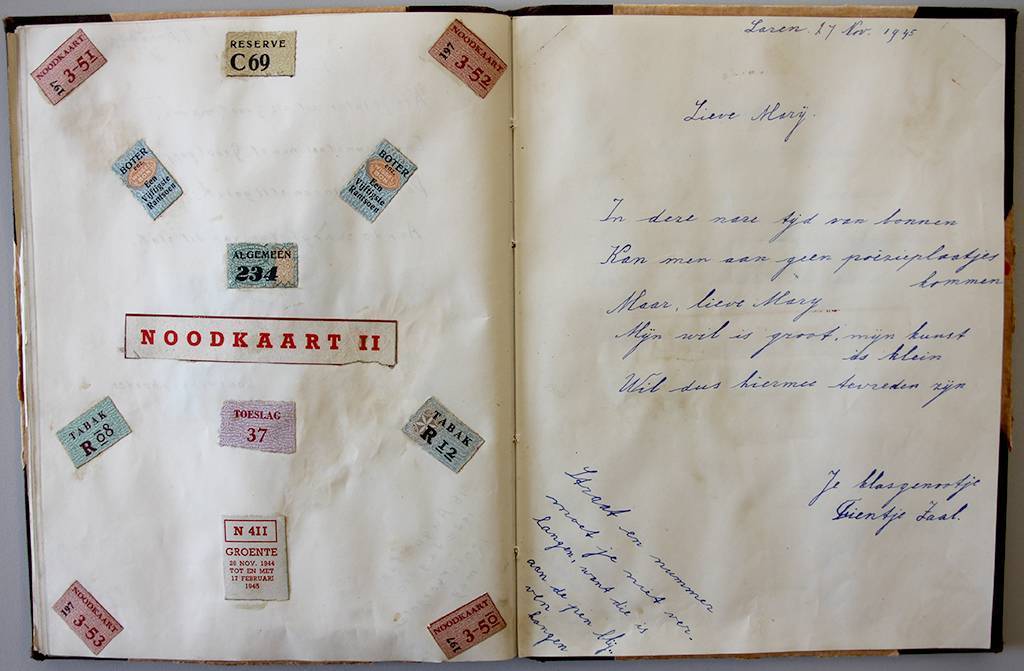 NOODKAART
3-51
197
RESERVE
C 69
NOODKAART
3-52
197
BOTER
enz.
Een
Vijftigste
Rantsoen
BOTER
enz.
Een
Vijftigste
Rantsoen
ALGEMEEN
234
NOODKAART II
TABAK
R 08
TOESLAG
37
TABAK
R 12
N 411
GROENTE
26 NOV. 1944
TOT EN MET
17 FEBRUARI
1945
NOODKAART
3-53
197
NOODKAART
3-50
197
Laren 27 Nov. 1945
Lieve Marÿ.
In deze nare tijd van bonnen
Kan men aan geen poëzieplaatjes
kommen
Maar, lieve Mary
Mijn wil is groot, mijn kunst
is klein
Wil dus hiermee tevreden zijn
Je klasgenootje
Tientje Zaal.
Straat en nummer
moet je niet ver-
langen, want die is
aan de pen blij-
ven hangen